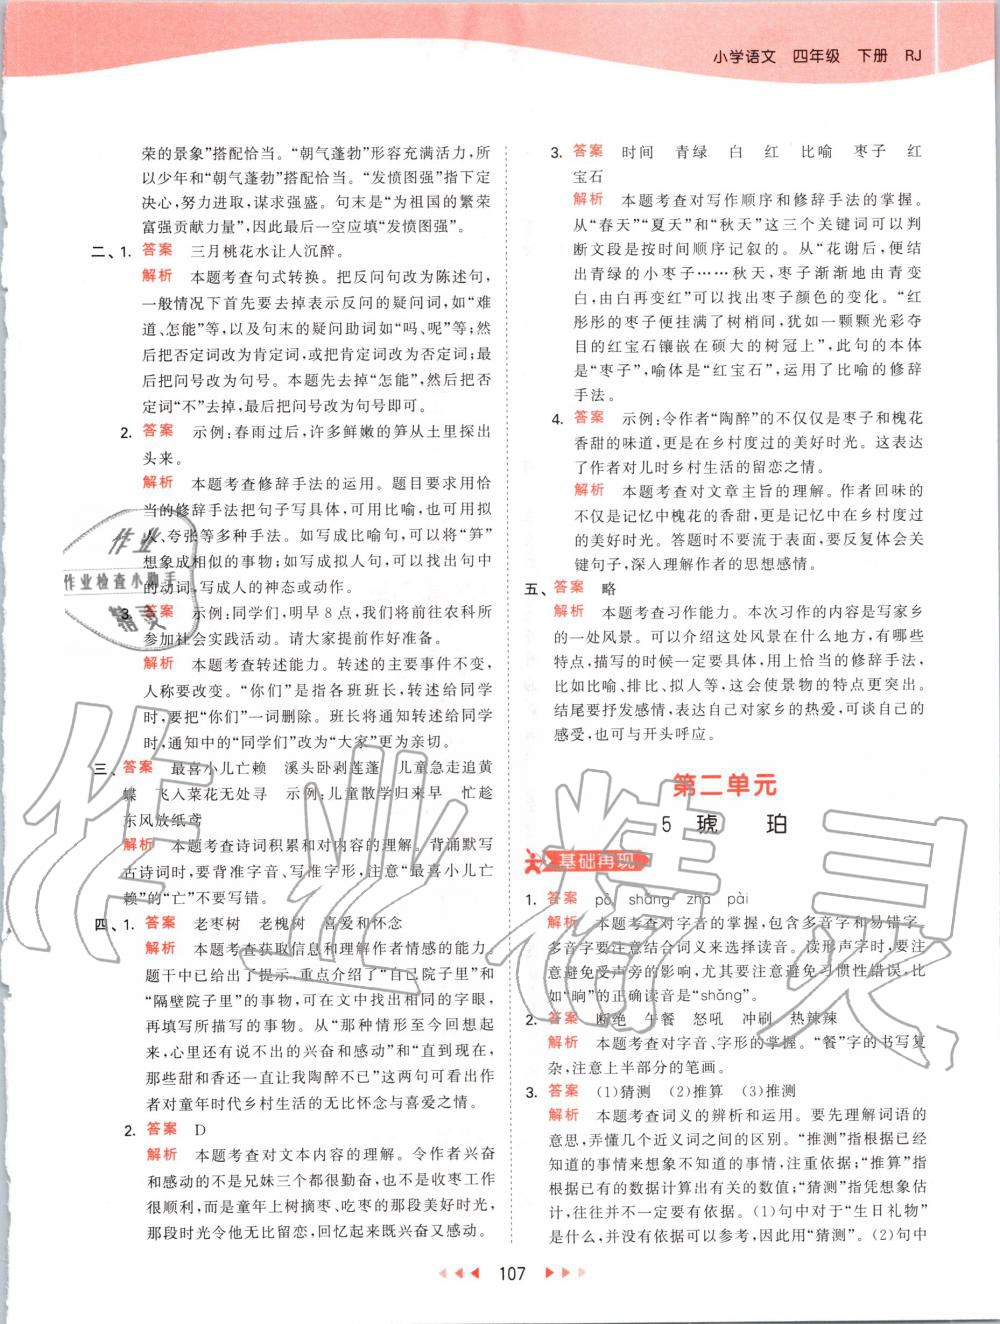 小学语文 四年级 下册 RJ
荣的景象”搭配恰当。“朝气蓬勃”形容充满活力,所
以少年和“朝气蓬勃”搭配恰当。“发愤图强”指下定
决心,努力进取,谋求强盛。句末是“为祖国的繁荣
富强贡献力量”,因此最后一空应填“发愤图强”。
二、1. 答案 三月桃花水让人沉醉。
解析 本题考查句式转换。把反问句改为陈述句,
一般情况下首先要去掉表示反问的疑问词,如“难
道、怎能”等,以及句末的疑问助词如“吗、呢”等;然
后把否定词改为肯定词,或把肯定词改为否定词;最
后把问号改为句号。本题先去掉“怎能”,然后把否
定词“不”去掉,最后把问号改为句号即可。
2. 答案 示例:春雨过后,许多鲜嫩的笋从土里探出
头来。
解析 本题考查修辞手法的运用。题目要求用恰
当的修辞手法把句子写具体,可用比喻,也可用拟
人、夸张等多种手法。如写成比喻句,可以将“笋”
想象成相似的事物;如写成拟人句,可以找出句中
的动词,写成人的神态或动作。
3. 答案 示例:同学们,明早8点,我们将前往农科所
参加社会实践活动。请大家提前作好准备。
解析 本题考查转述能力。转述的主要事件不变,
人称要改变。“你们”是指各班班长,转述给同学
时,要把“你们”一词删除。班长将通知转述给同学
时,通知中的“同学们”改为“大家”更为亲切。
三、答案 最喜小儿亡赖 溪头卧剥莲蓬 儿童急走追黄
蝶 飞入菜花无处寻 示例:儿童散学归来早 忙趁
东风放纸鸢
解析 本题考查诗词积累和对内容的理解。背诵默写
古诗词时,要背准字音、写准字形,注意“最喜小儿亡
赖”的“亡”不要写错。
四、1. 答案 老枣树 老槐树 喜爱和怀念
解析 本题考查获取信息和理解作者情感的能力。
题干中已给出了提示,重点介绍了“自己院子里”和
“隔壁院子里”的事物,可在文中找出相同的字眼,
再填写所描写的事物。从“那种情形至今回想起
来,心里还有说不出的兴奋和感动”和“直到现在,
那些甜和香还一直让我陶醉不已”这两句可看出作
者对童年时代乡村生活的无比怀念与喜爱之情。
2. 答案 D
解析 本题考查对文本内容的理解。令作者兴奋
和感动的不是兄妹三个都很勤奋,也不是收枣工作
很顺利,而是童年上树摘枣、吃枣的那段美好时光,
那段时光令他无比留恋,回忆起来既兴奋又感动。
3. 答案 时间 青绿 白 红 比喻 枣子 红
宝石
解析 本题考查对写作顺序和修辞手法的掌握。
从“春天”“夏天”和“秋天”这三个关键词可以判
断文段是按时间顺序记叙的。从“花谢后,便结
出青绿的小枣子……秋天,枣子渐渐地由青变
白,由白再变红”可以找出枣子颜色的变化。“红
彤彤的枣子便挂满了树梢间,犹如一颗颗光彩夺
目的红宝石镶嵌在硕大的树冠上”,此句的本体
是“枣子”,喻体是“红宝石”,运用了比喻的修辞
手法。
4. 答案 示例:令作者“陶醉”的不仅仅是枣子和槐花
香甜的味道,更是在乡村度过的美好时光。这表达
了作者对儿时乡村生活的留恋之情。
解析 本题考查对文章主旨的理解。作者回味的
不仅是记忆中槐花的香甜,更是记忆中在乡村度过
的美好时光。答题时不要流于表面,要反复体会关
键句子,深入理解作者的思想感情。
五、答案 略
解析 本题考查习作能力。本次习作的内容是写家乡
的一处风景。可以介绍这处风景在什么地方,有哪些
特点,描写的时候一定要具体,用上恰当的修辞手法,
比如比喻、排比、拟人等,这会使景物的特点更突出。
结尾要抒发感情,表达自己对家乡的热爱,可谈自己的
感受,也可与开头呼应。
第二单元
5 琥 珀
基础再现
1. 答案 pō shǎng zhá pài
解析 本题考查对字音的掌握,包含多音字和易错字。
多音字要注意结合词义来选择读音。读形声字时,要注
意避免受声旁的影响,尤其要注意避免习惯性错误,比
如“晌”的正确读音是“shǎng”。
2. 答案 断绝 午餐 怒吼 冲刷 热辣辣
解析 本题考查对字音、字形的掌握。“餐”字的书写复
杂,注意上半部分的笔画。
3. 答案 (1)猜测 (2)推算 (3)推测
解析 本题考查词义的辨析和运用。要先理解词语的
意思,弄懂几个近义词之间的区别。“推测”指根据已经
知道的事情来想象不知道的事情,注重依据;“推算”指
根据已有的数据计算出有关的数值;“猜测”指凭想象估
计,往往并不一定要有依据。(1)句中对于“生日礼物”
是什么,并没有依据可以参考,因此用“猜测”。(2)句中
107
作业
作业检查小助手
精灵
作业精灵